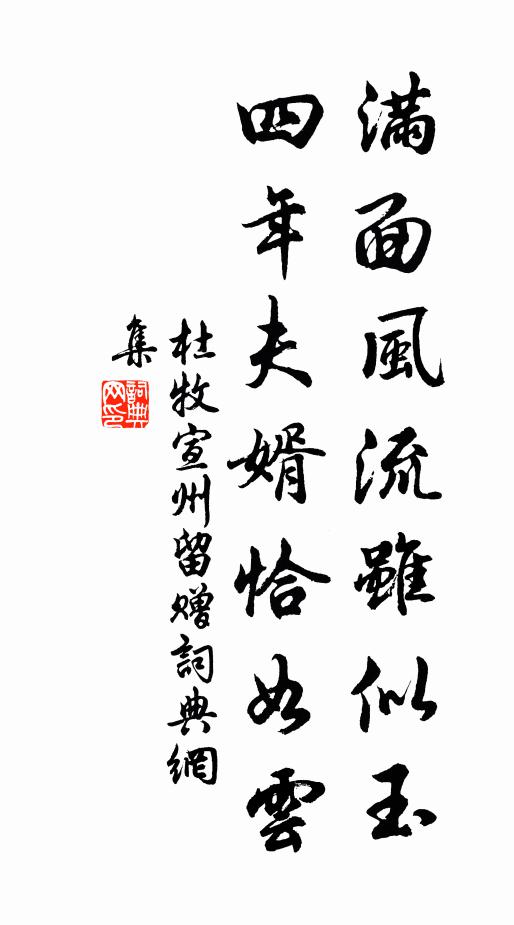 滿面風流雖似玉
四年夫婿恰如雲
杜牧宣州留贈詞典網
集
詞典網印